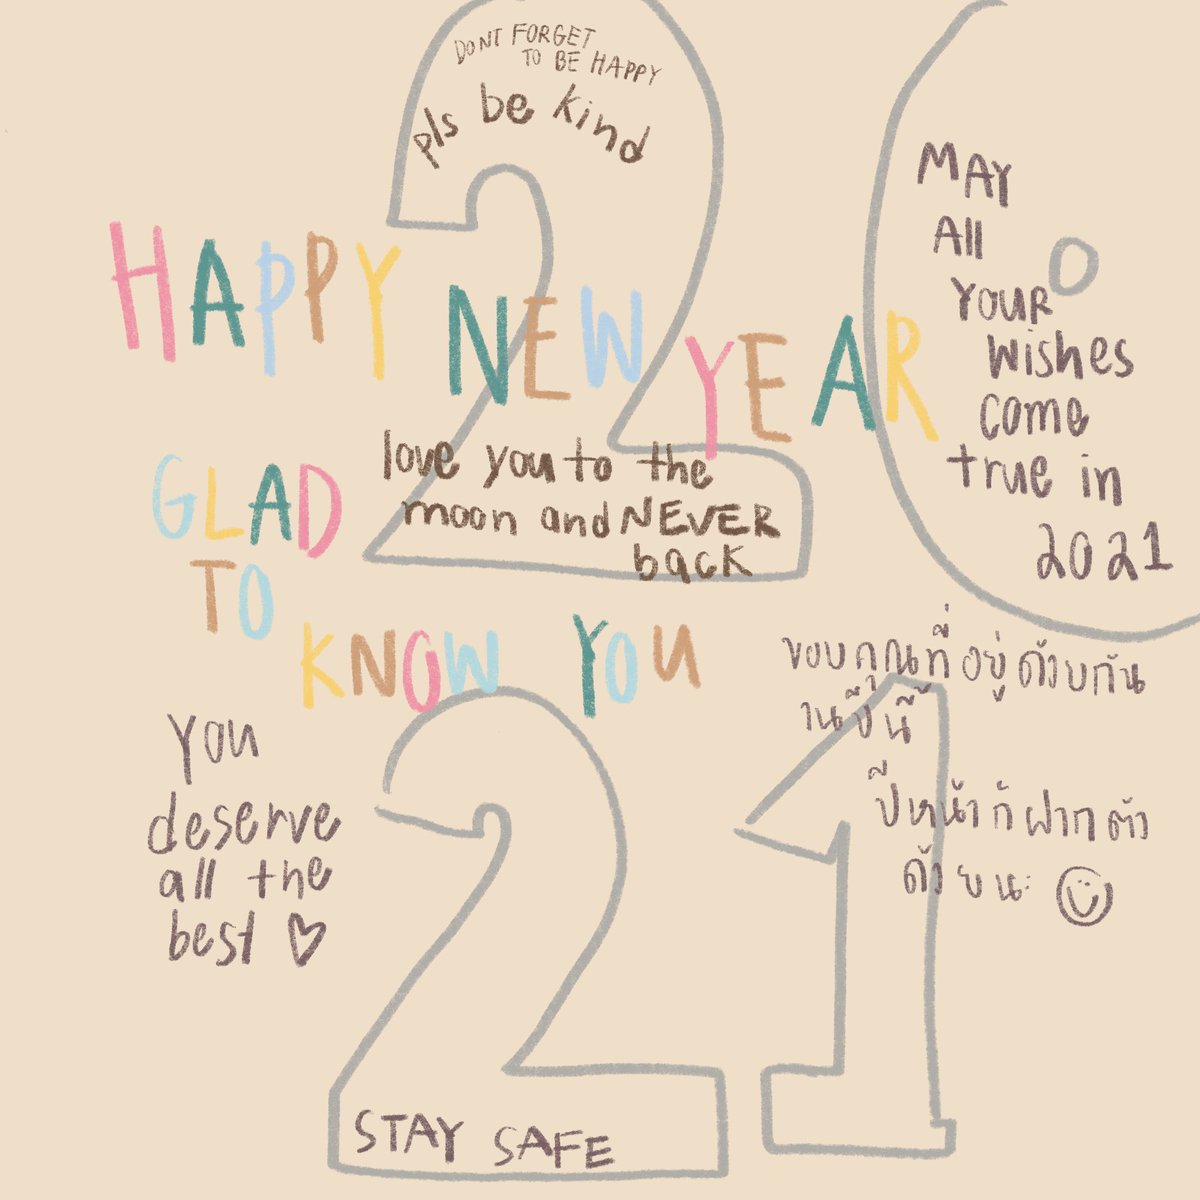 DONT FORGET
TO BE HAPPY
pls be kind
HAPPY NEW YEAR
MAY
All
YOUR
wishes
come
true in
2021
love you to the
moon and NEVER
back
GLAD
TO
KNOW YOU
ขอบคุณที่อยู่ด้วยกัน
านปีนี้
ปีหน้าก็ฝากตัว
ด้วยนะ
You
deserve
all the
best
STAY SAFE
2021